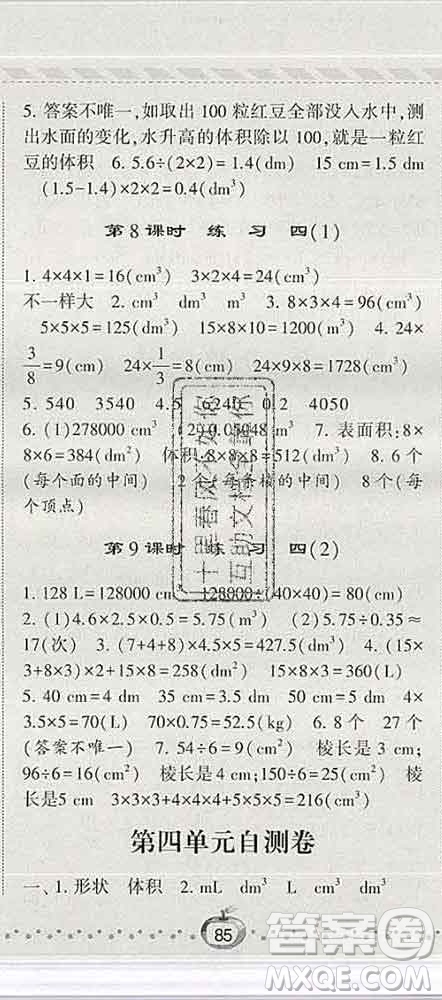 5. 答案不唯一,如取出 100 粒红豆全部没入水中,测
出水面的变化,水升高的体积除以 100,就是一粒红
豆的体积 6. 5.6÷(2×2)=1.4(dm) 15 cm=1.5 dm
(1.5-1.4)×2×2=0.4(dm³)
第 8 课时 练 习 四(1)
1. 4×4×1=16(cm³) 3×2×4=24(cm³)
不一样大 2. cm³ dm³ m³ 3. 8×3×4=96(cm³)
5×5×5=125(dm³) 15×8×10=1200(m³) 4. 24×
3/8=9(cm) 24×1/3=8(cm) 24×9×8=1728(cm³)
5. 540 3540 4.5 6240 0.2 4050
6. (1)278000 cm³ (2)0.05048 m³ 7. 表面积:8×
8×6=384(dm²) 体积:8×8×8=512(dm³) 8. 6 个
(每个面的中间) 2 个(每条棱的中间) 8 个(每
个顶点)
第 9 课时 练 习 四(2)
1. 128 L=128000 cm³ 128000÷(40×40)=80(cm)
2. (1)4.6×2.5×0.5=5.75(m³) (2)5.75÷0.35≈
17(次) 3. (7+4+8)×4.5×5=427.5(dm³) 4. (15×
3+8×3)×2+15×8=258(dm²) 15×8×3=360(L)
5. 40 cm=4 dm 35 cm=3.5 dm 5 dm 4×
3.5×5=70(L) 70×0.75=52.5(kg) 6. 8 个 27 个
(答案不唯一) 7. 54÷6=9(cm²) 棱长是 3 cm;
96÷6=16(cm²) 棱长是 4 cm; 150÷6=25(cm²) 棱
长是 5 cm 3×3×3+4×4×4+5×5×5=216(cm³)
第四单元自测卷
一、1. 形状 体积 2. mL dm³ L cm³ dm³
85
十里春风不如你
互助文档全靠你
答案卷
MXQE.COM